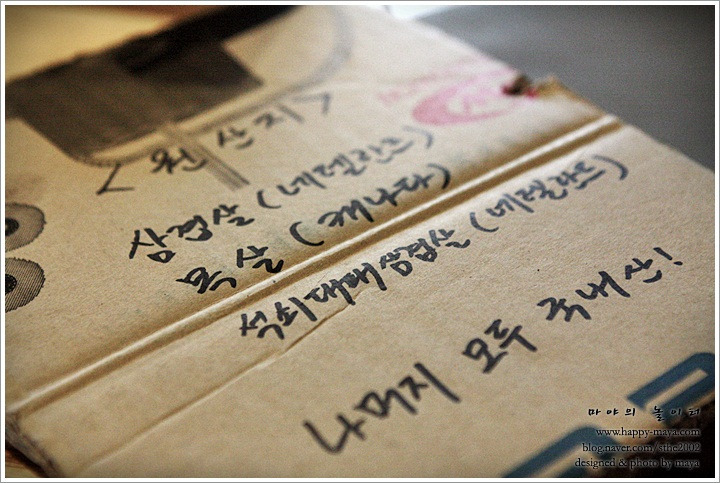 <원산지>
삼겹살 (네델란드)
목살 (캐나다)
석쇠대패삼겹살 (네델란드)
나머지 모두 국내산!
마야의 놀이터
www.happy-maya.com
blog.naver.com/sthe2002
designed & photo by maya